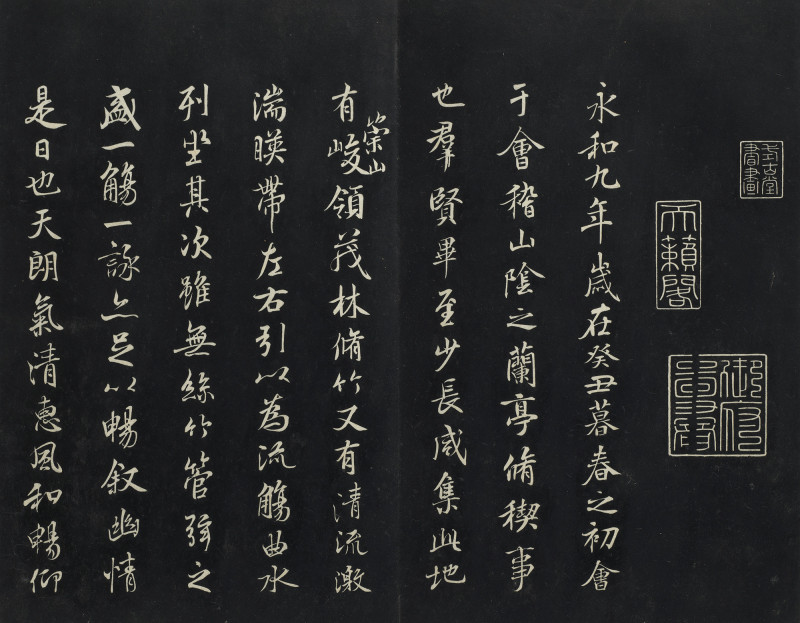 式古堂
書畫
天籟閣
永和九年歲在癸丑暮春之初會
于會稽山陰之蘭亭脩稧事
也羣賢畢至少長咸集此地
有崇山峻領茂林脩竹又有清流激
湍暎帶左右引以為流觴曲水
列坐其次雖無絲竹管弦之
盛一觴一詠亦足以暢叙幽情
是日也天朗氣清惠風和暢仰